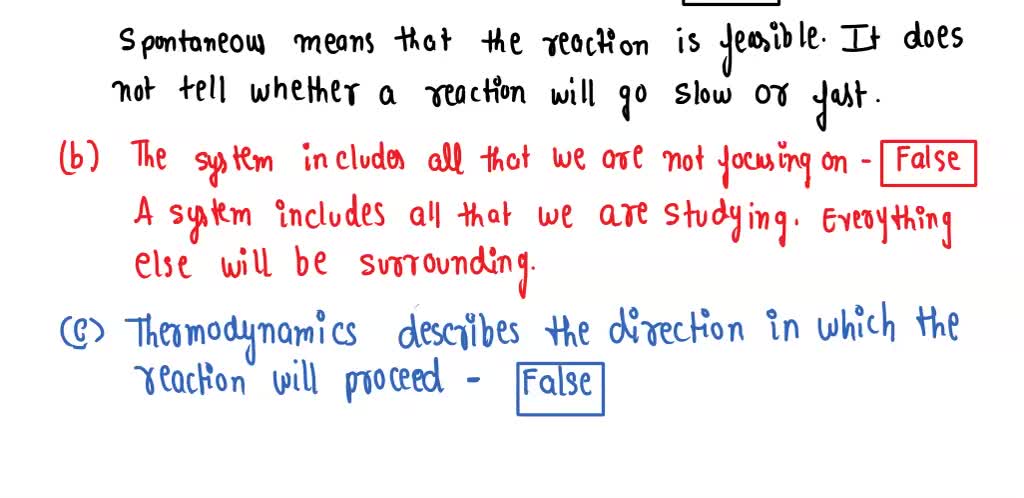 Spontaneous means that the reaction is feasible. It does
not tell whether a reaction will go slow or fast.
(b) The system includes all that we are not focusing on - False
A system includes all that we are studying. Everything
else will be surrounding.
(c) Thermodynamics describes the direction in which the
reaction will proceed - False